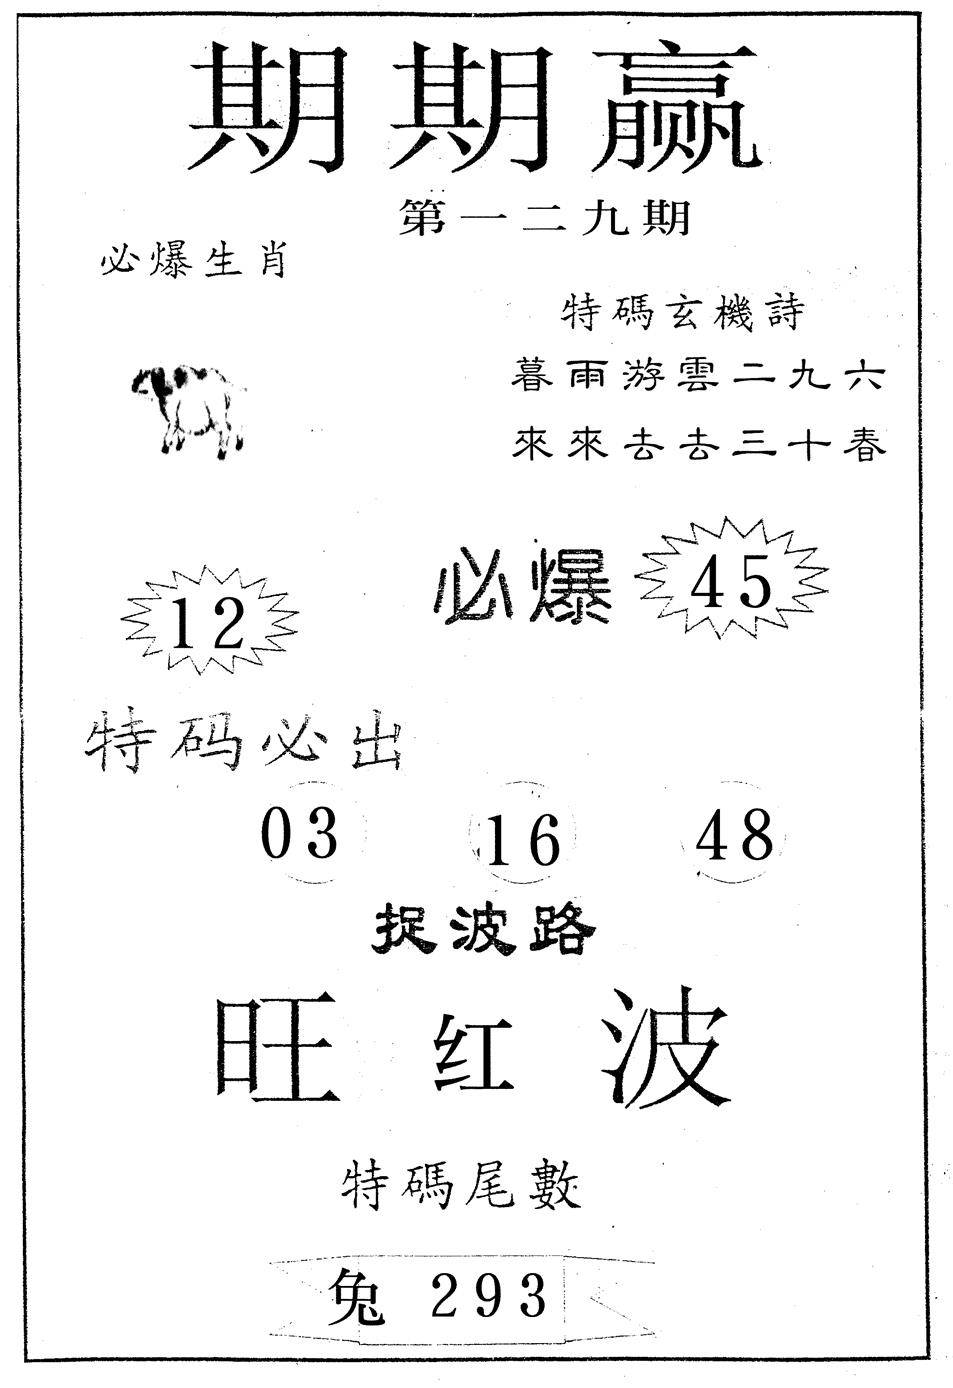 期期赢
第一二九期
必爆生肖
特碼玄機詩
暮雨游雲二九六
來來去去三十春
必爆 45
12
特码必出
03 16 48
捉波路
旺红波
特碼尾數
兔 293